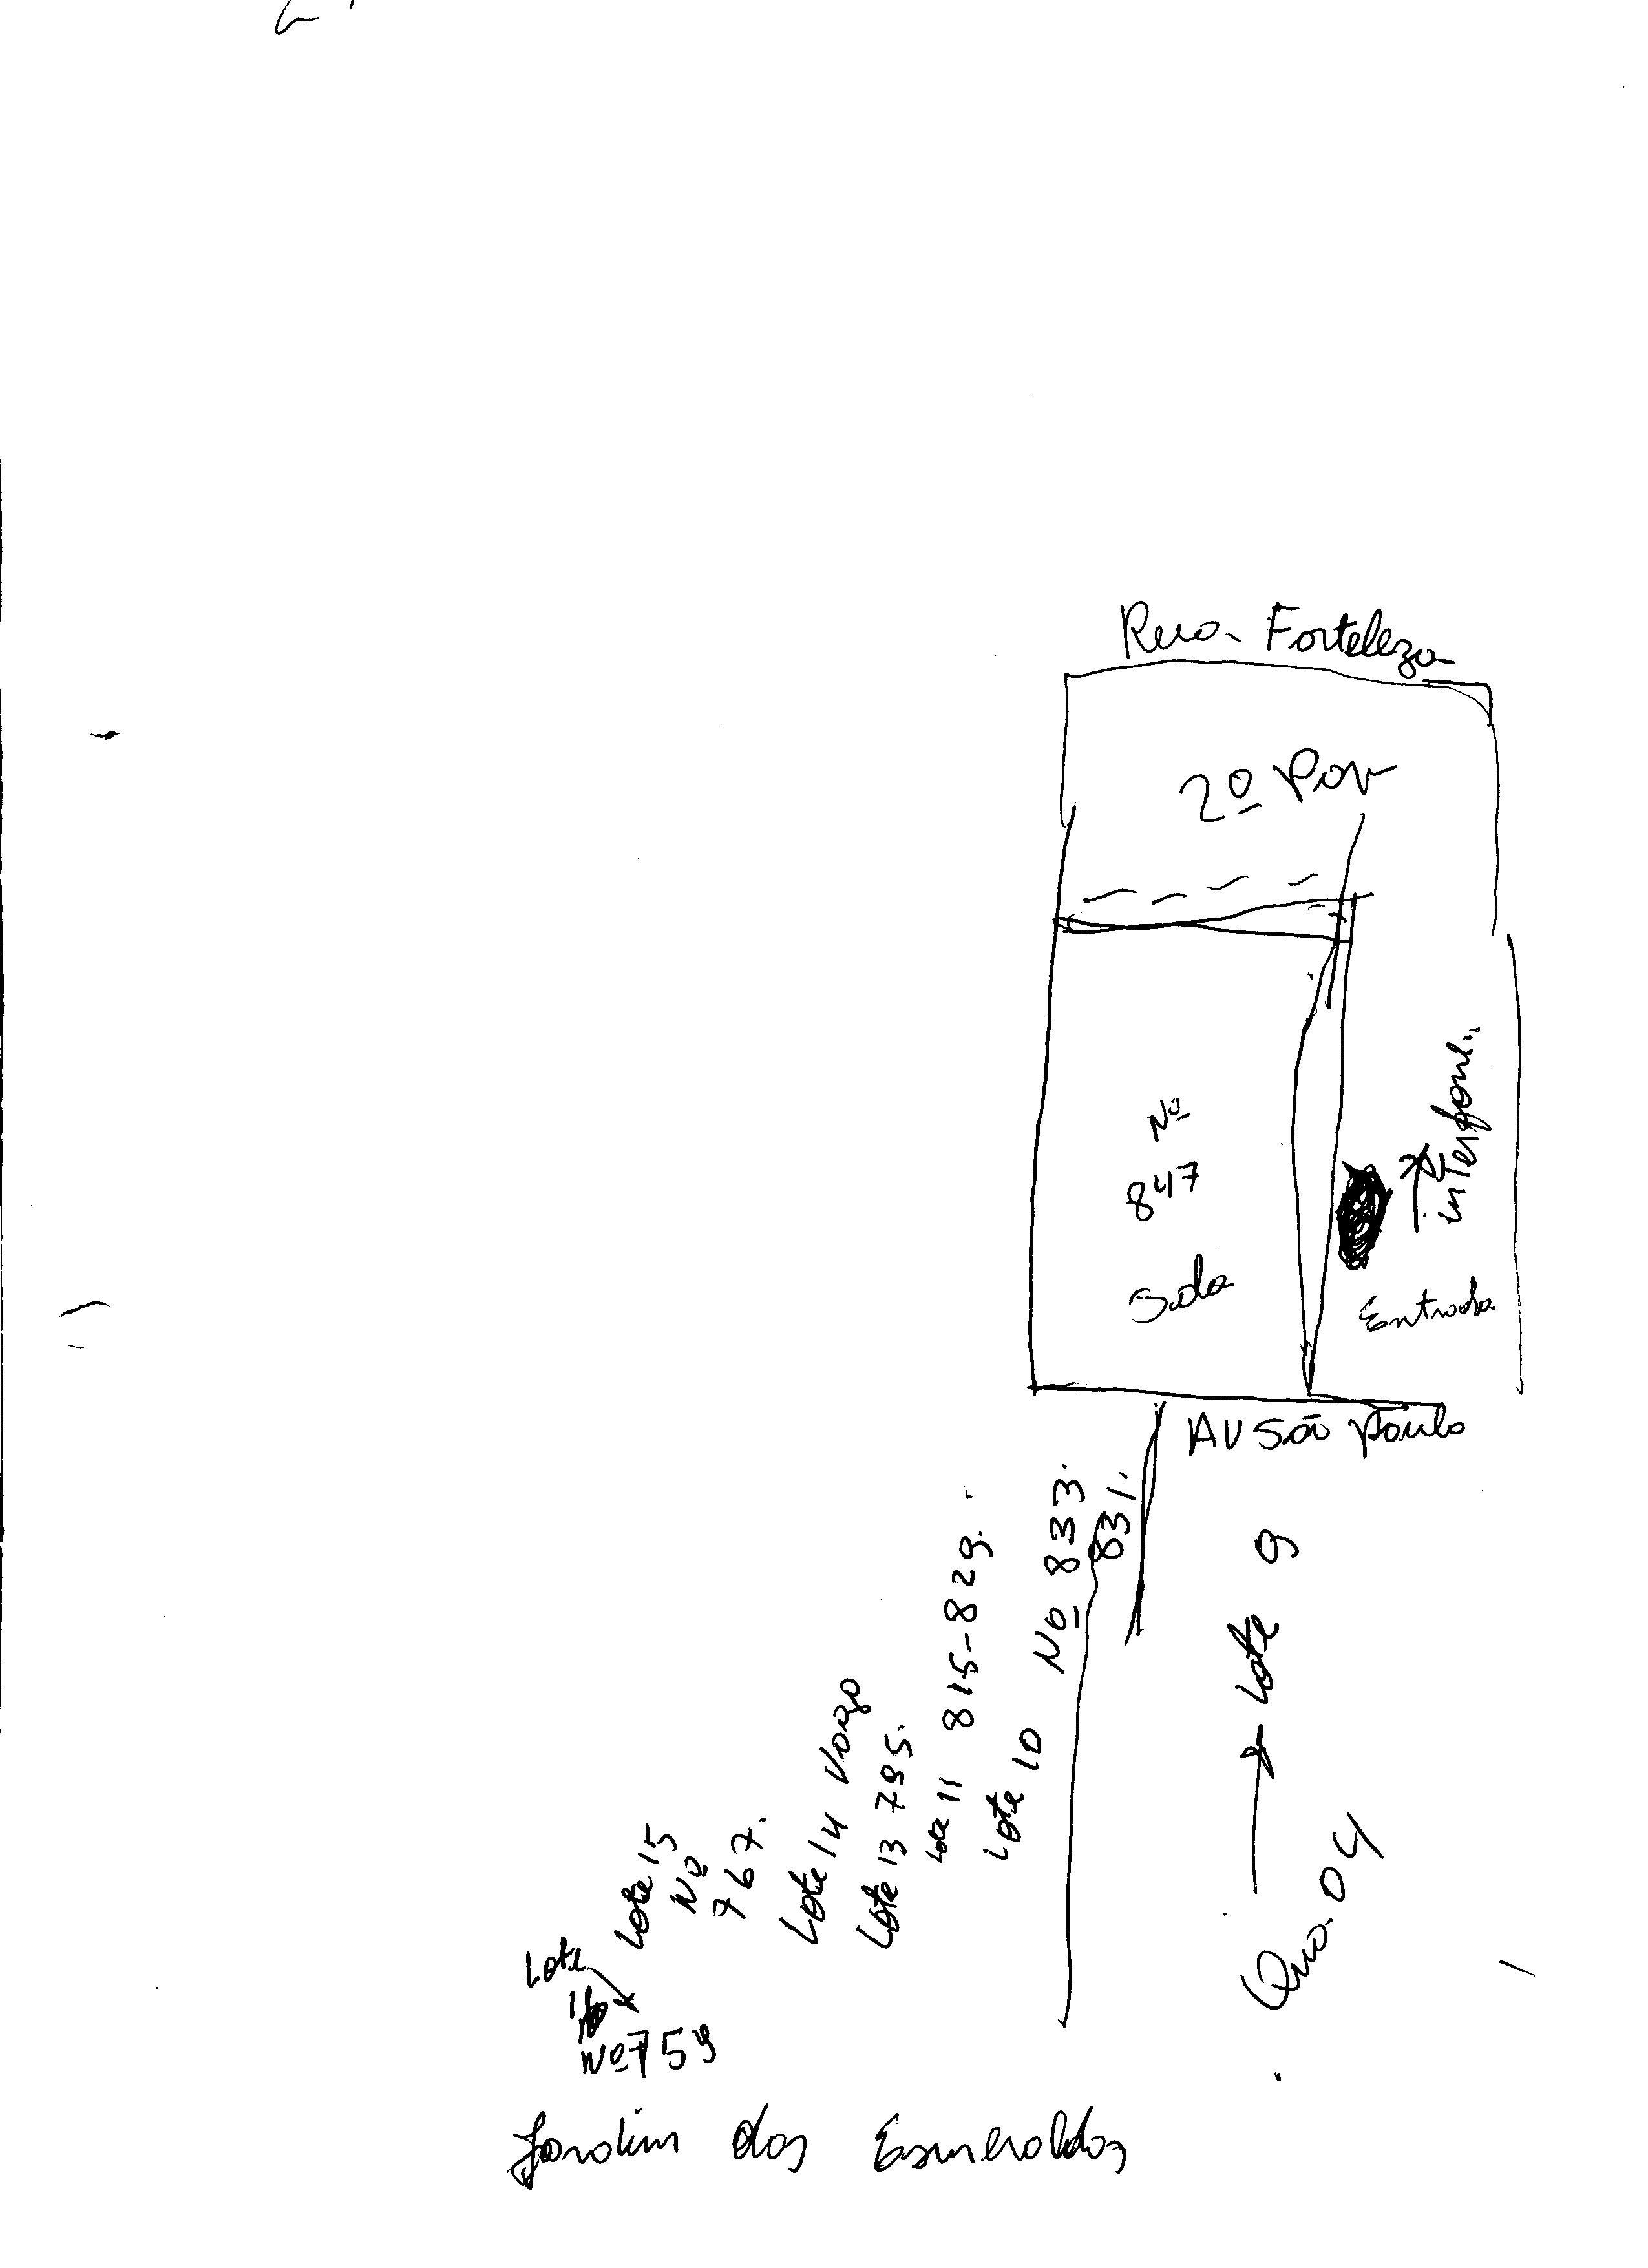 Rua Fortaleza
2º Pav
Nº
847
Sala
interfone
Entrada
AV São Paulo
Lote 9
Qua. 04
Nº 833.
831.
Lote 10
Lote 11 815-829.
Lote 13 795.
Lote 14 Vago
Lote 15
Nº
767.
Lote
16
Nº 759
Jardim das Esmeraldas